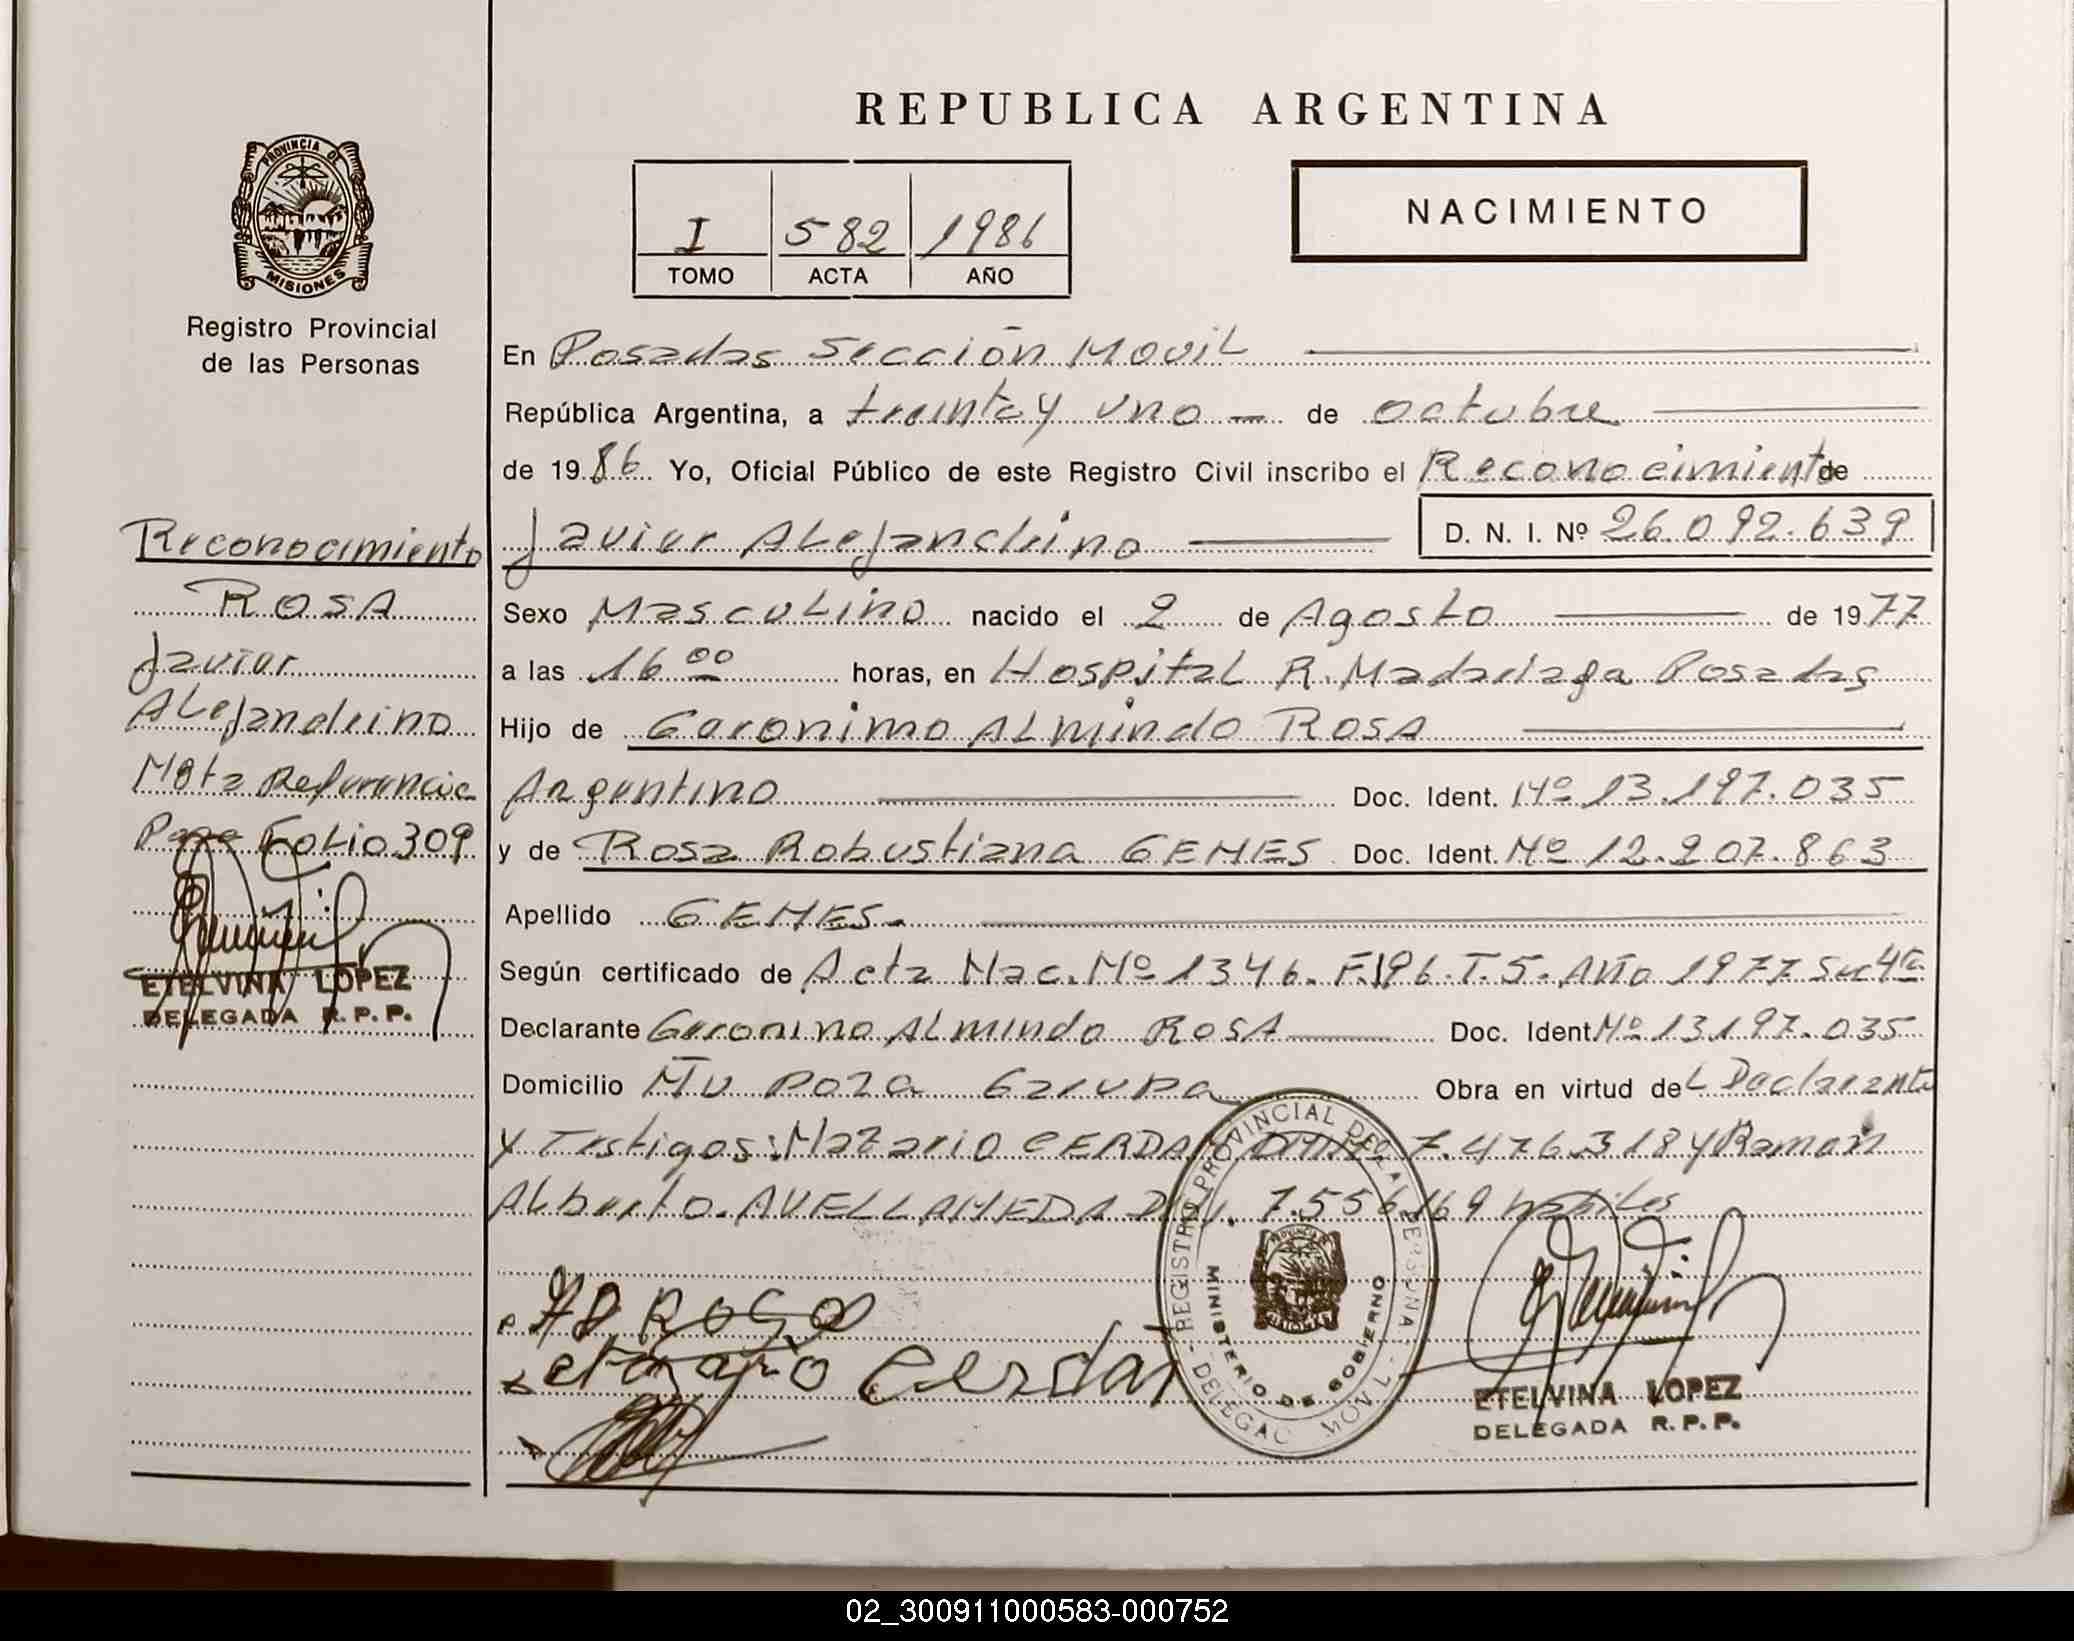 REPUBLICA ARGENTINA
PROVINCIA DE
MISIONES
Registro Provincial
de las Personas
I 582 1986
TOMO ACTA AÑO
NACIMIENTO
En Posadas Sección Movil
República Argentina, a treinta y uno de octubre
de 1986 Yo, Oficial Público de este Registro Civil inscribo el Reconocimiento de
Javier ALejandrino D. N. I. Nº 26.092.639
Sexo MascuLino nacido el 2 de Agosto de 1977
a las 16 00 horas, en HospitaL R. Madariaga Posadas
Hijo de Geronimo ALmindo ROSA
Argentino Doc. Ident. Nº 13.197.035
y de Rosa Robustiana GENES Doc. Ident. Nº 12.207.863
Apellido GENES.
Según certificado de Acta Nac. Nº 1346. F.196. T.5. Año 1977 Sec 4ta
Declarante Geronimo ALmindo ROSA Doc. Ident Nº 13197.035
Domicilio Garupa Obra en virtud deL Declarante
y Testigos: Nazario CERDAN 7.476.318 y Ramon
ALberto. AVELLANEDA 7.556169 habiLes
Reconocimiento
ROSA
Javier
ALejandrino
Nota Referencia
Pase FoLio 309
ETELVINA LOPEZ
DELEGADA R.P.P.
Rosa
Cerdan
REGISTRO PROVINCIAL DE LAS PERSONAS
MINISTERIO DE GOBIERNO
MOVIL
ETELVINA LOPEZ
DELEGADA R.P.P.
02_300911000583-000752